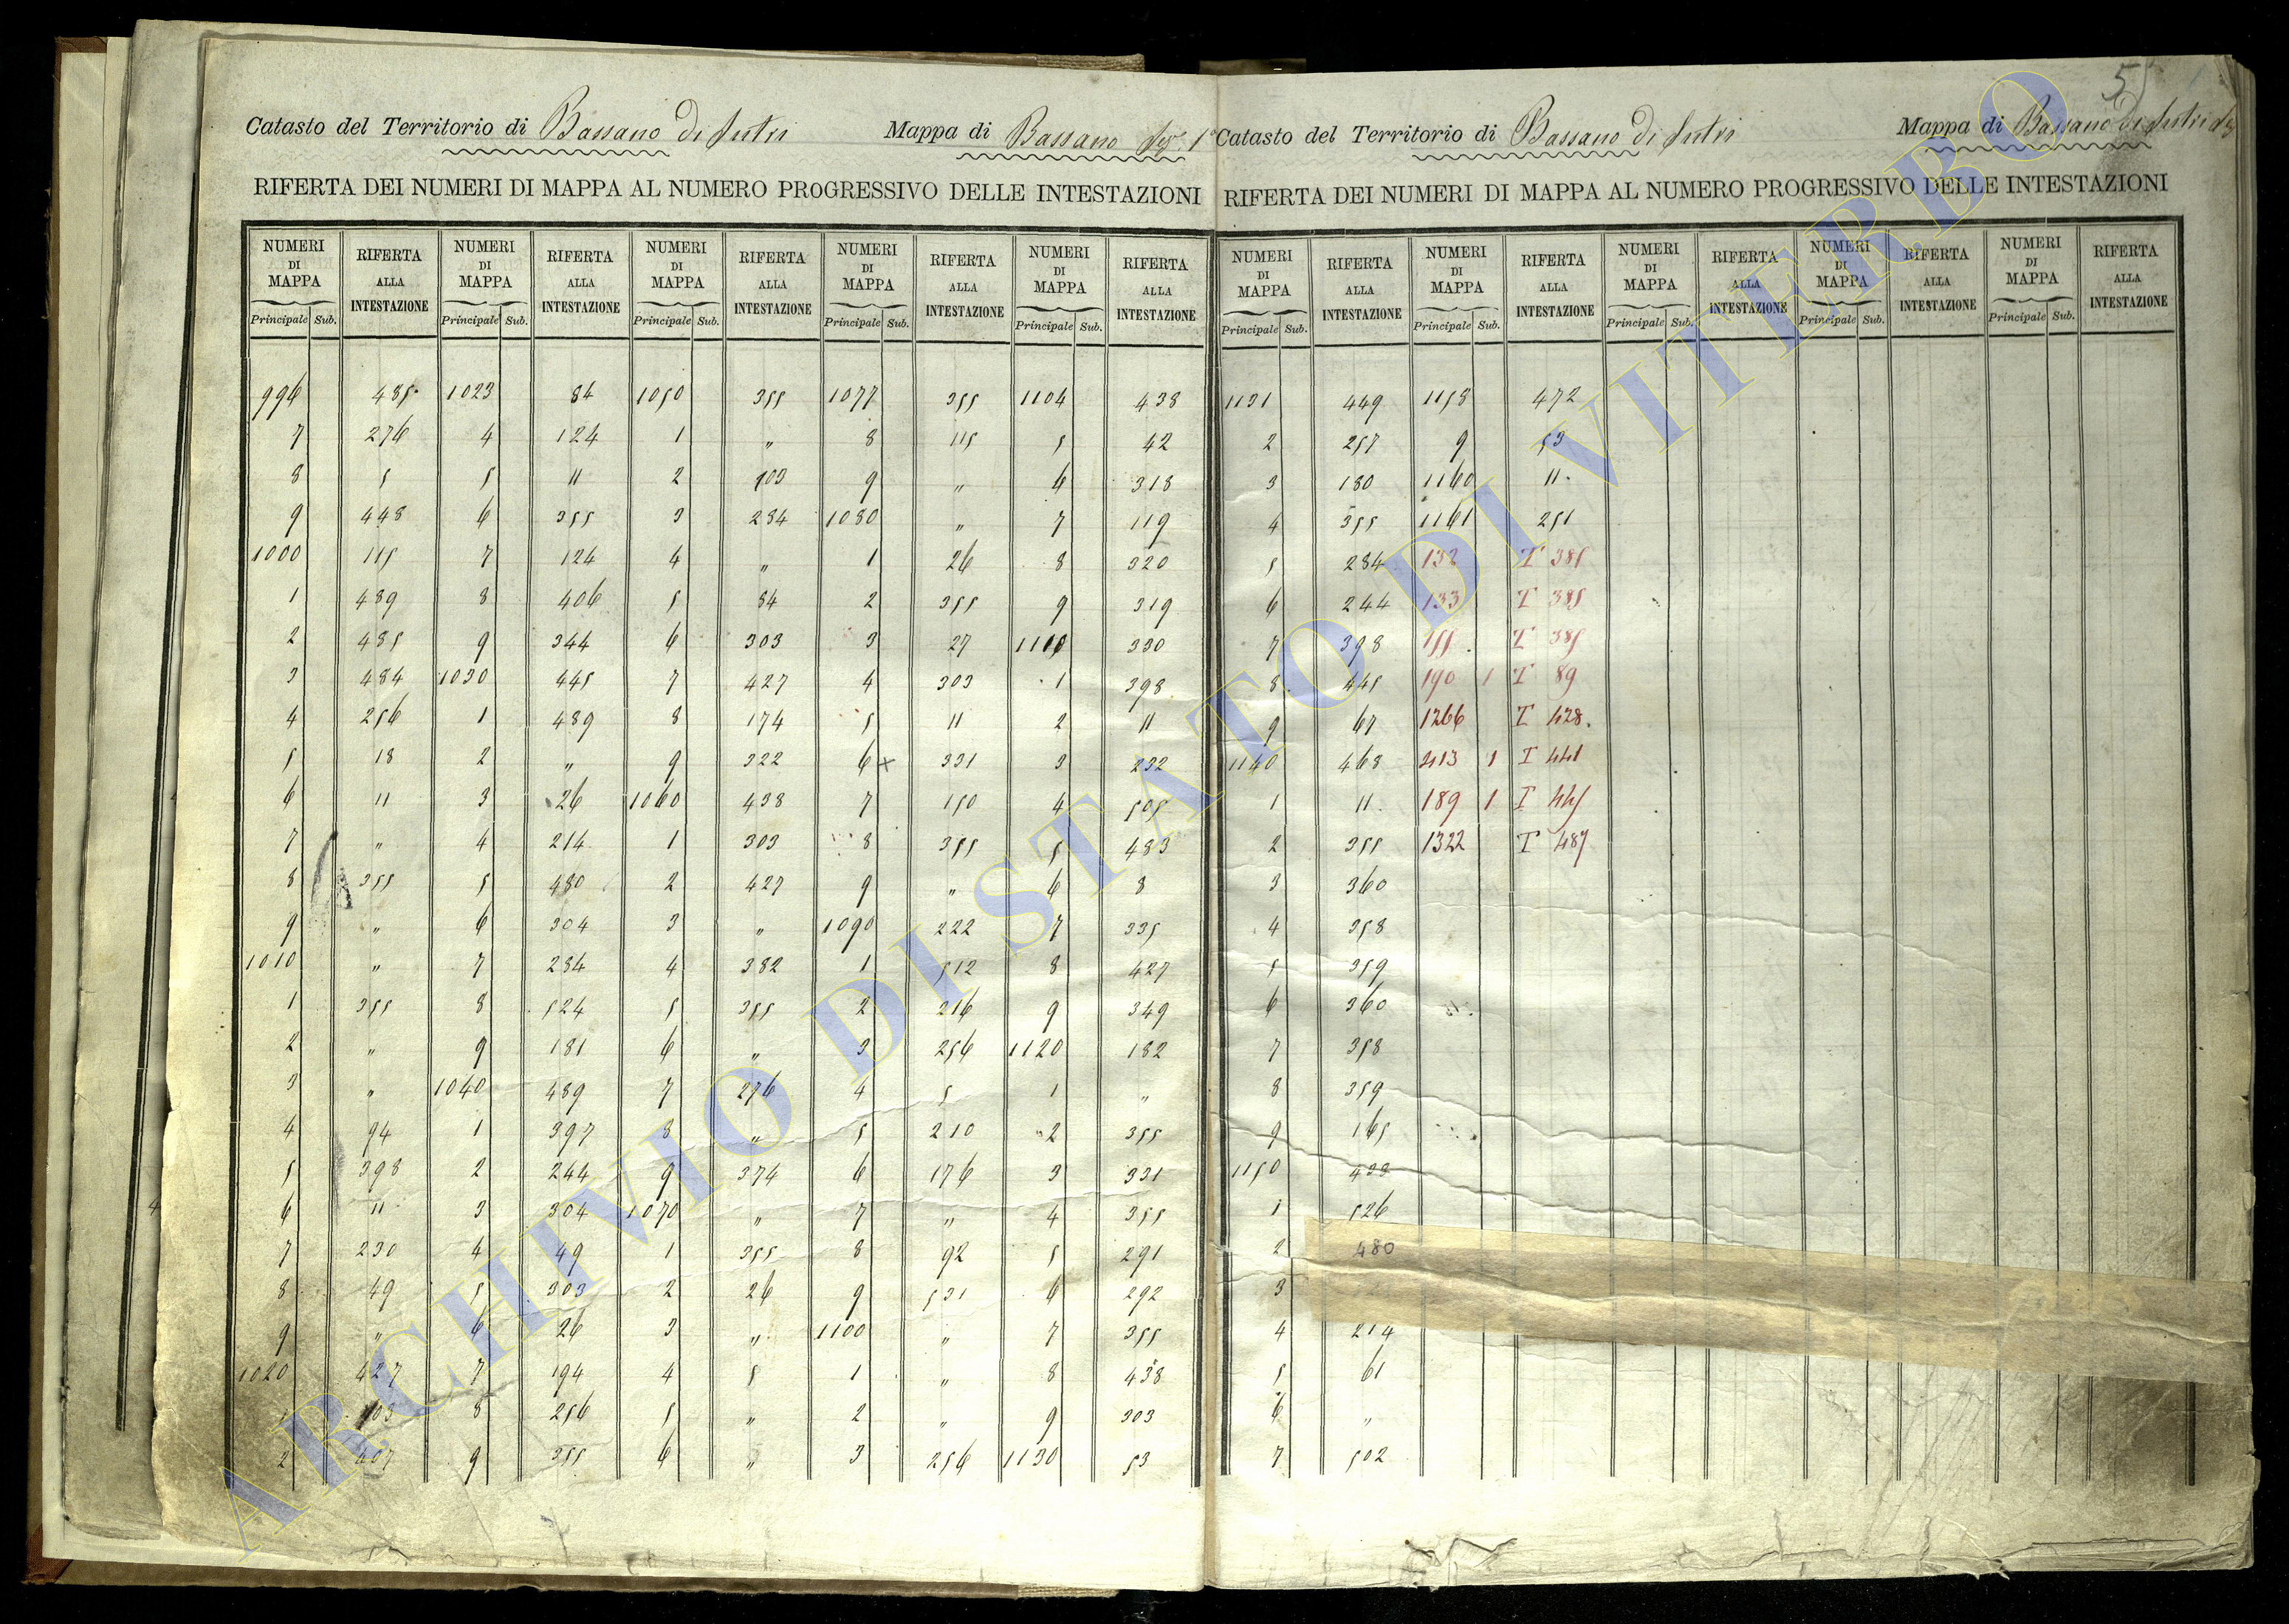 5
Catasto del Territorio di Bassano di Sutri Mappa di Bassano Sez. 1ª
RIFERTA DEI NUMERI DI MAPPA AL NUMERO PROGRESSIVO DELLE INTESTAZIONI
NUMERI DI MAPPA RIFERTA ALLA INTESTAZIONE NUMERI DI MAPPA RIFERTA ALLA INTESTAZIONE NUMERI DI MAPPA RIFERTA ALLA INTESTAZIONE NUMERI DI MAPPA RIFERTA ALLA INTESTAZIONE NUMERI DI MAPPA RIFERTA ALLA INTESTAZIONE
Principale Sub. Principale Sub. Principale Sub. Principale Sub. Principale Sub.
996 485 1023 84 1050 355 1077 355 1104 438
7 276 4 124 1 " 8 115 5 42
8 5 5 11 2 103 9 " 6 318
9 448 6 355 3 284 1080 " 7 119
1000 115 7 124 4 " 1 26 8 320
1 489 8 406 5 84 2 355 9 319
2 485 9 344 6 303 3 27 1110 330
3 484 1030 445 7 427 4 303 1 398
4 256 1 489 8 174 5 11 2 11
5 18 2 " 9 322 6 x 331 3 232
6 11 3 26 1060 438 7 150 4 505
7 " 4 214 1 303 8 355 5 483
8 355 5 480 2 427 9 " 6 8
9 " 6 304 3 " 1090 222 7 335
1010 " 7 284 4 382 1 512 8 427
1 355 8 524 5 355 2 216 9 349
2 " 9 181 6 " 3 256 1120 182
3 " 1040 489 7 276 4 5 1 "
4 94 1 397 8 " 5 210 2 355
5 398 2 244 9 374 6 176 3 331
6 11 3 304 1070 " 7 " 4 355
7 230 4 49 1 355 8 92 5 291
8 49 5 303 2 26 9 531 6 292
9 " 6 26 3 " 1100 " 7 355
1020 427 7 194 4 5 1 " 8 438
1 103 8 256 5 " 2 " 9 303
2 407 9 355 6 " 3 256 1130 53
Catasto del Territorio di Bassano di Sutri Mappa di Bassano di Sutri
RIFERTA DEI NUMERI DI MAPPA AL NUMERO PROGRESSIVO DELLE INTESTAZIONI
NUMERI DI MAPPA RIFERTA ALLA INTESTAZIONE NUMERI DI MAPPA RIFERTA ALLA INTESTAZIONE NUMERI DI MAPPA RIFERTA ALLA INTESTAZIONE NUMERI DI MAPPA RIFERTA ALLA INTESTAZIONE NUMERI DI MAPPA RIFERTA ALLA INTESTAZIONE
Principale Sub. Principale Sub. Principale Sub. Principale Sub. Principale Sub.
1131 449 1158 472
2 257 9 53
3 180 1160 11
4 355 1161 251
5 284 132 I 385
6 244 133 I 385
7 398 155 I 385
8 445 190 1 I 89
9 67 1266 I 428
1140 468 413 1 I 441
1 11 189 1 I 445
2 355 1322 I 487
3 360
4 358
5 359
6 360
7 358
8 359
9 165
1150 433
1 526
2 480
3
4 214
5 61
6 "
7 502
ARCHIVIO DI STATO DI VITERBO